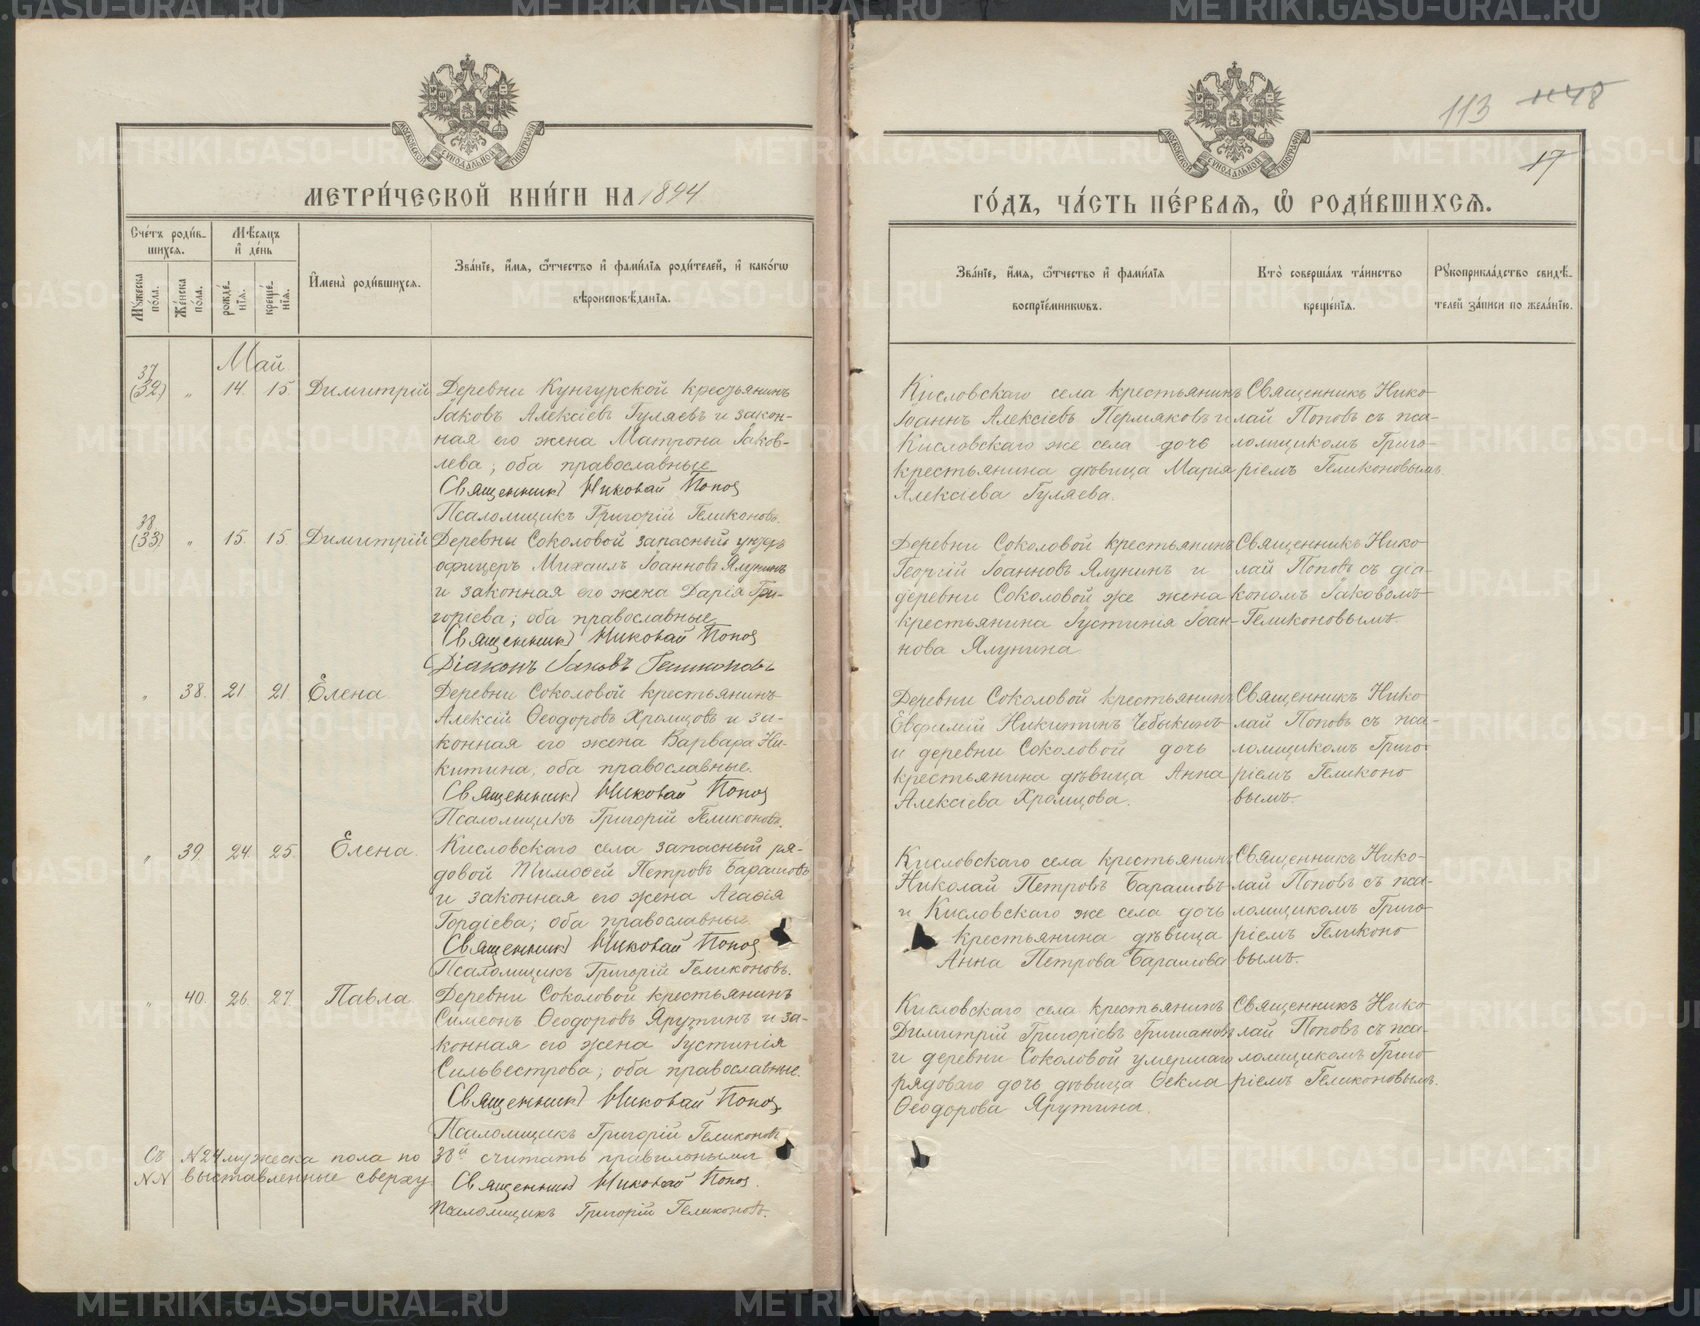 113 1148
17
МЕТРИ́ЧЕСКОЙ КНИ́ГИ НА 1894
ГО́ДЪ, ЧА́СТЬ ПЕ́РВАѦ, Ѡ РОДИ́ВШИХСѦ.
Сче́тъ роди́в-
шихсѧ.
Мꙋжеска по́ла.
Же́нска по́ла.
Мѣ́сѧцъ
и҆ де́нь
рожде́нїѧ.
креще́нїѧ.
И҆мена̀ роди́вшихсѧ.
Зва́нїе, и҆́мѧ, ѻ҆́тчество и҆ фами́лїѧ роди́телей, и҆ како́гѡ
вѣроисповѣ́данїѧ.
Зва́нїе, и҆́мѧ, ѻ҆́тчество и҆ фами́лїѧ
воспрїе́мникѡвъ.
Кто̀ соверша́лъ та́инство
креще́нїѧ.
Рꙋкоприкла́дство свидѣ́-
телей за́писи по жела́нїю.
Май
37
(32) " 14. 15. Димитрій
Деревни Кунгурской крестьянинъ
Іаковъ Алексіевъ Гуляевъ и закон-
ная его жена Матрона Іаков-
лева; оба православные
Священникъ Николай Попов
Псаломщикъ Григорій Геликоновъ.
Кисловскаго села крестьянинъ
Іоаннъ Алексіевъ Пермяковъ и
Кисловскаго же села дочь
крестьянина дѣвица Марія
Алексіева Гуляева.
Священникъ Нико-
лай Поповъ съ пса-
ломщикомъ Григо-
ріемъ Геликоновымъ
38
(33) " 15. 15. Димитрій
Деревни Соколовой запасный унтеръ
офицеръ Михаилъ Іоанновъ Ялунинъ
и законная его жена Дарія Гри-
горіева; оба православные
Священникъ Николай Попов
Діаконъ Іаковъ Геликоновъ
Деревни Соколовой крестьянинъ
Георгій Іоанновъ Ялунинъ и
деревни Соколовой же жена
крестьянина Іустинія Іоан-
нова Ялунина
Священникъ Нико
лай Поповъ съ діа-
кономъ Іаковомъ
Геликоновымъ
" 38. 21 21 Елена
Деревни Соколовой крестьянинъ
Алексій Ѳеодоровъ Храмцовъ и за-
конная его жена Варвара Ни-
китина, оба православные.
Священникъ Николай Попов
Псаломщикъ Григорій Геликоновъ.
Деревни Соколовой крестьянинъ
Евфимій Никитинъ Чебыкинъ
и деревни Соколовой дочь
крестьянина дѣвица Анна
Алексіева Храмцова.
Священникъ Нико
лай Поповъ съ пса-
ломщикомъ Григо
ріемъ Геликоно
вымъ.
" 39. 24. 25. Елена.
Кисловскаго села запасный ря-
довой Тимоѳей Петровъ Барашовъ
и законная его жена Агаѳія
Гордіева; оба православные
Священникъ Николай Попов
Псаломщикъ Григорій Геликоновъ.
Кисловскаго села крестьянинъ
Николай Петровъ Барашовъ
и Кисловскаго же села дочь
крестьянина дѣвица
Анна Петрова Барашова
Священникъ Нико-
лай Поповъ съ пса-
ломщикомъ Григо
ріемъ Геликоно
вымъ.
" 40. 26. 27. Павла
Деревни Соколовой крестьянинъ
Симеонъ Ѳеодоровъ Яружинъ и за-
конная его жена Іустинія
Сильвестрова; оба православные.
Священникъ Николай Попов
Псаломщикъ Григорій Геликоновъ
Кисловскаго села крестьянинъ
Димитрій Григоріевъ Гришановъ
и деревни Соколовой умершаго
рядоваго дочь дѣвица Ѳекла
Ѳеодорова Яружина.
Священникъ Нико
лай Поповъ съ пса-
ломщикомъ Григо
ріемъ Геликоновымъ.
Съ №24 мужеска пола по 38й считать правильными
№№ выставленные сверху
Священникъ Николай Попов.
Псаломщикъ Григорій Геликоновъ.
METRIKI.GASO-URAL.RU